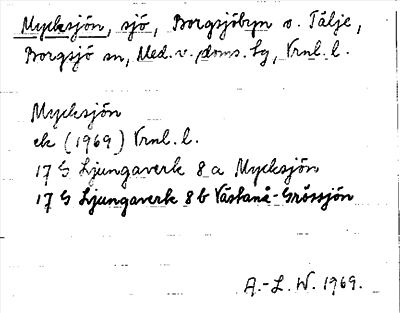 Mycksjön, sjö, Borgsjöbyn o. Tälje,
Borgsjö sn, Med. v. doms. lg, Vrnl. l.
Mycksjön
ek (1969) Vrnl. l.
17 G Ljungaverk 8 a Mycksjön
17 G Ljungaverk 8 b Västanå-Grössjön
A.-L. W. 1969.